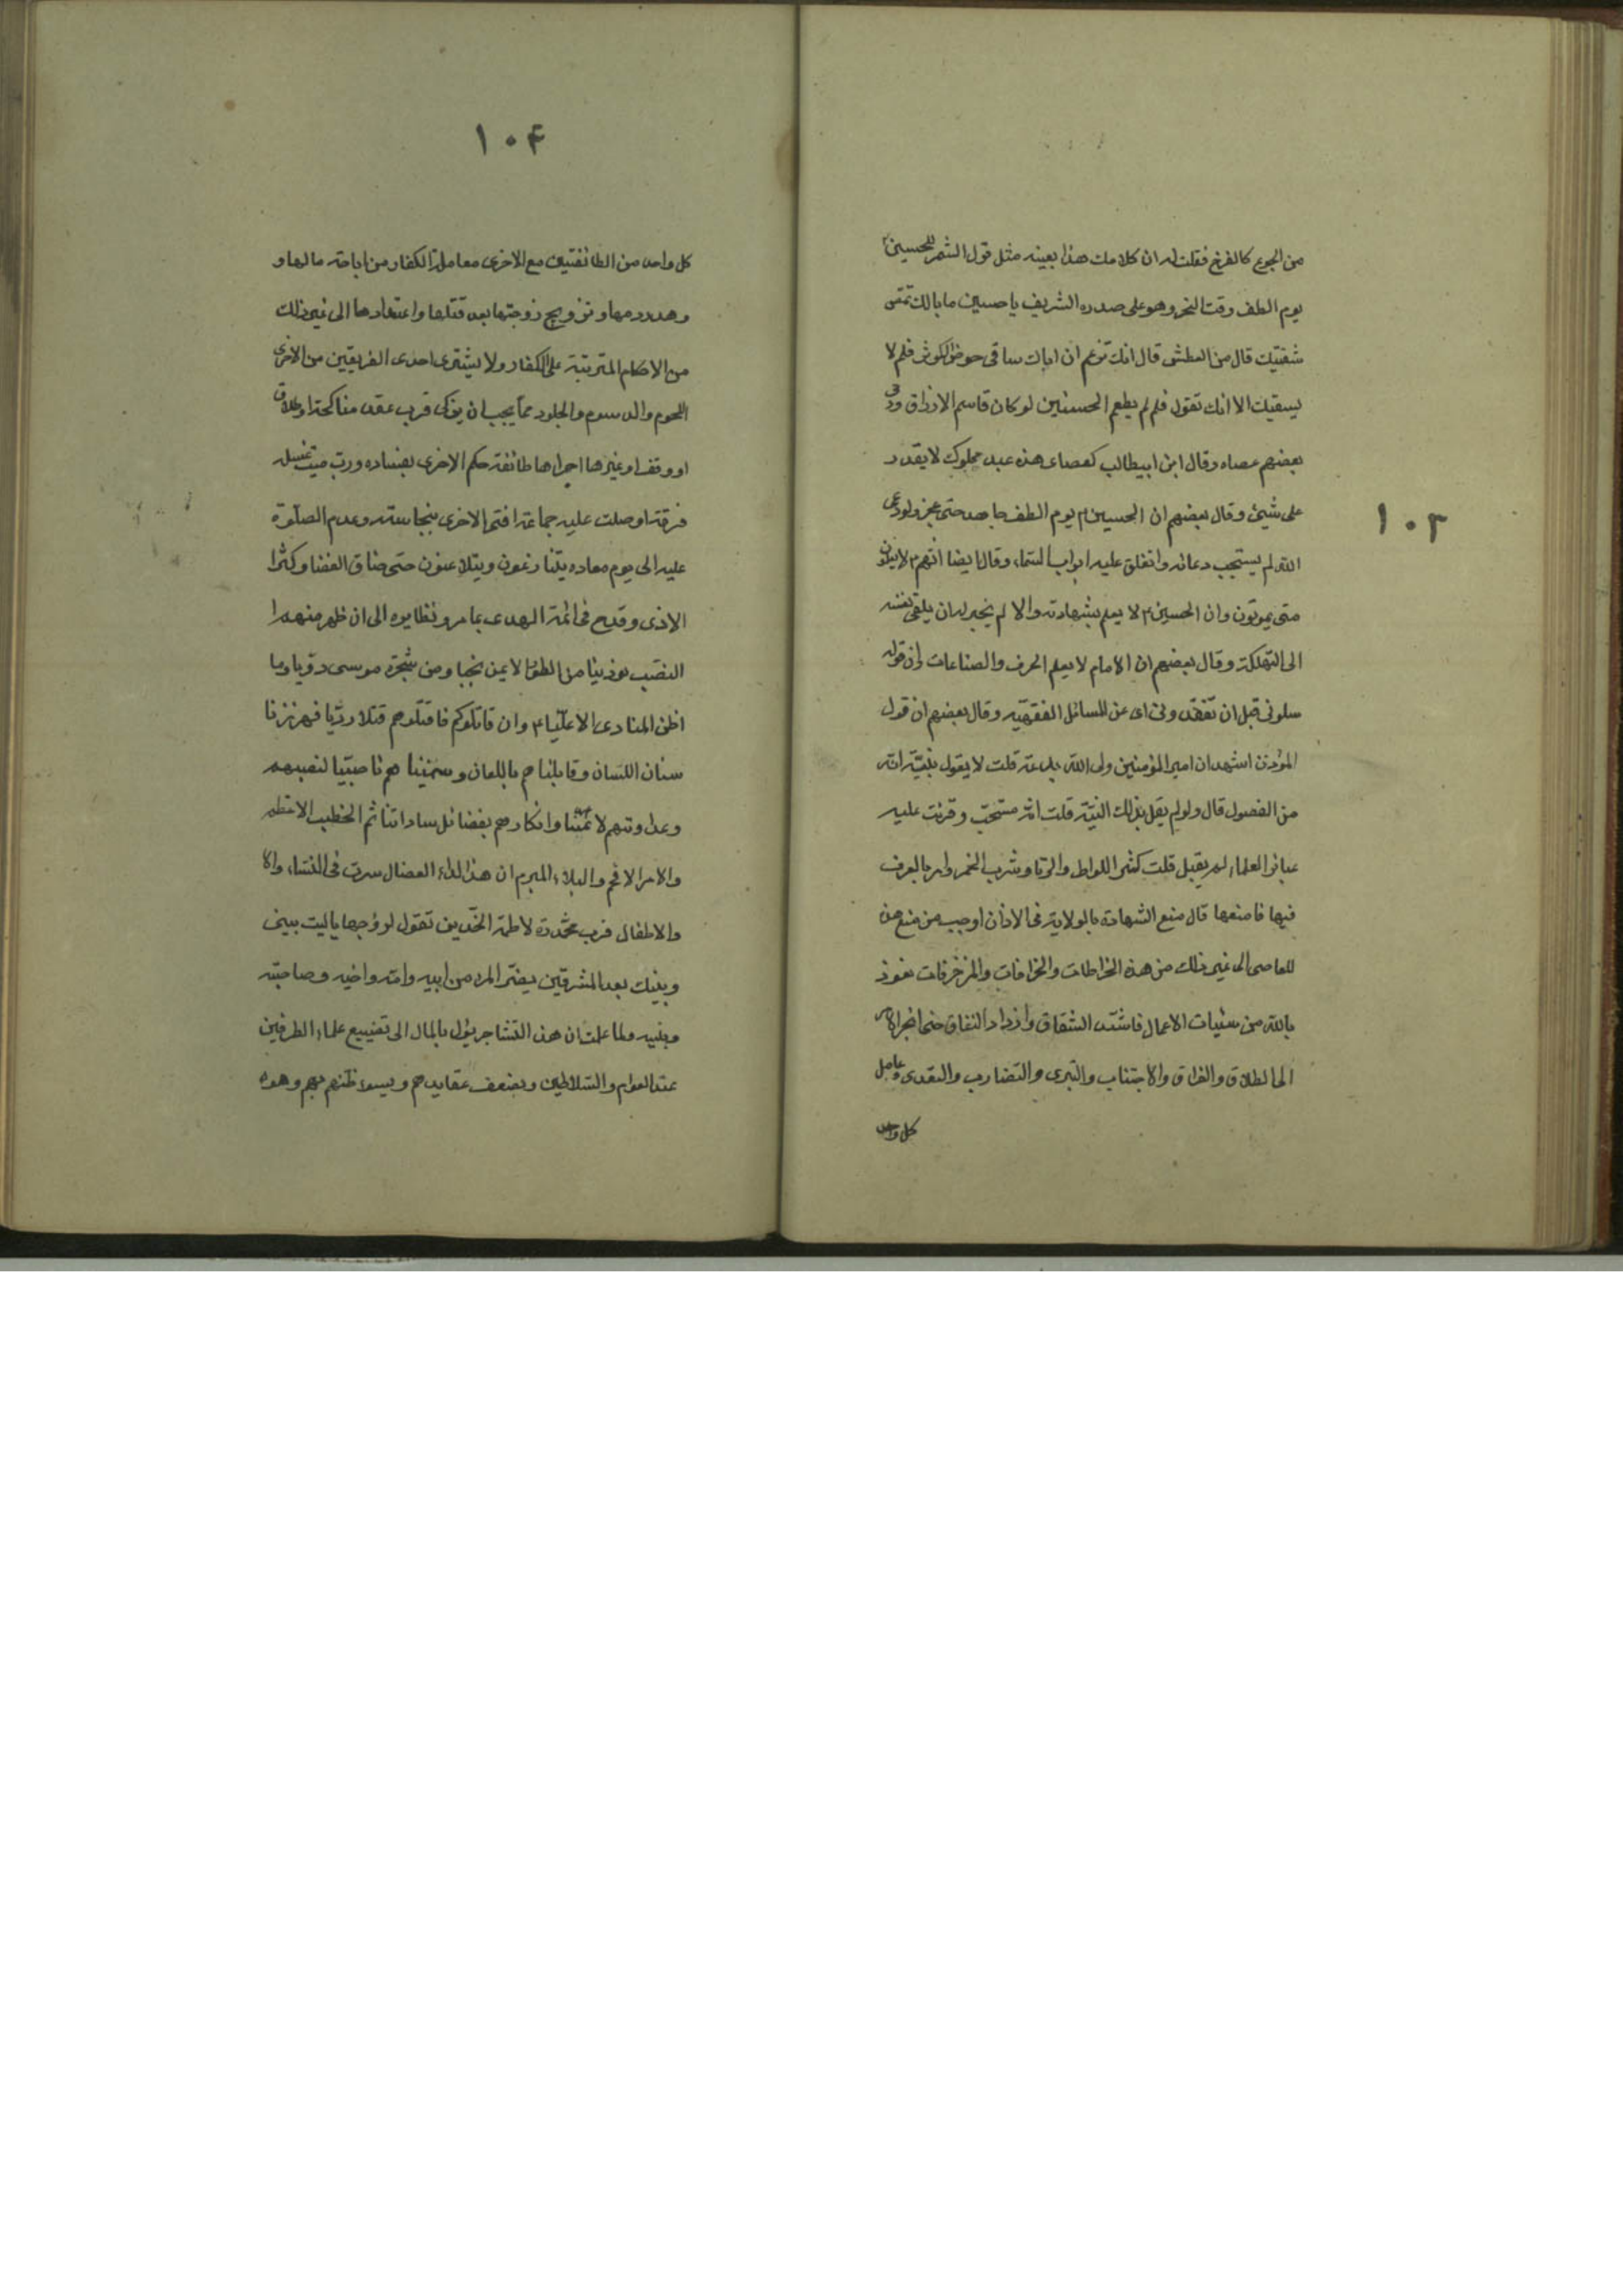 ١٠٣
من الجوع كالفرخ فقلت له ان كلامك هذا بعينه مثل قول الشمر للحسين
يوم الطف وقت النحر وهو على صدره الشريف يا حسين ما بالك تمص
شفتيك قال من العطش قال انك تزعم ان اباك ساقى حوض الكوثر فلم لا
يسقيك الا انك تقول فلم لم يطعم الحسنين لو كان قاسم الارزاق
بعضهم عصاه وقال ابن ابيطالب كعصاى هذه عبد مملوك لا يقدر
على شيئ وقال بعضهم ان الحسين يوم الطف جاهد حتى عجز ولو دعى
الله لم يستجب دعائه وانغلق عليه ابواب السماء وقال ايضا انهم لا يعلمون
متى يموتون وان الحسين لا يعلم بشهادته والا لم يجز له ان يلقى نفسه
الى التهلكة وقال بعضهم ان الامام لا يعلم الحرف والصناعات وان قوله
سلونى قبل ان تفقدونى اى عن المسائل الفقهيه وقال بعضهم ان قول
المؤذن اشهد ان امير المؤمنين ولى الله بدعة قلت لا يقول بنيّة انه
من الفصول قال ولو لم يقل بذلك النيّة قلت انه مستحب وقرئت عليه
عباير العلماء لم يقبل قلت كثر اللواط والزنا وشرب الخمر وامر بالعرف
فيها فامنعها قال منع الشهادة بالولاية فى الاذان اوجب من منع من
المعاصى الى غير ذلك من هذه الخراطات والخرافات والمزخرفات نعوذ
بالله من سيئات الاعمال فاشتد الشقاق وازداد النفاق حتى انجر الامر
الى الطلاق والفراق والاجتناب والتبرى والتضارب والتعدى وعامل
كل واحد
١٠۴
كل واحد من الطائفتين مع الاخرى معاملة الكفار من اباحة مالها و
وهدر دمها وتزويج زوجتها بعد قتلها واعتدادها الى غير ذلك
من الاحكام المترتبة على الكفار ولا يشترى احدى الفريقين من الاخرى
اللحوم والدسوم والجلود مما يجب ان يزكى فرب عقد مناكحة او طلاق
او وقف او غيرها اجراها طائفة حكم الاخرى بفساده ورب ميت غسله
فرقة او صلت عليه جماعة افتى الاخرى بنجاسته وعدم الصلوة
عليه الى يوم معاده يتنازعون ويتلاعنون حتى ضاق الفضا وكثرا
الاذى وقدح فى ائمة الهدى بما مر ونظايره الى ان ظهر منهم
النصب نودينا من الطور الايمن نجبا ومن شجرة موسى دويا وما
اظن المنادى الا عليا وان قاتلوكم فاقتلوهم قتلا رديّا فهززنا
سنان اللسان وقابلناهم باللعان وسمينا هم ناصبيّا لنصبهم
وعداوتهم لائمتنا وانكارهم بفضائل ساداتنا ثم الخطب الاعظم
والامر الافخم والبلاء المبرم ان هذا الداء العضال سرت فى النساء والا
والاطفال فرب مخدرة لاطمة الخدين تقول لزوجها يا ليت بينى
وبينك بعد المشرقين يفر المرء من ابيه وامه واخيه وصاحبته
وبنيه ولما علمت ان هذا التشاجر يئول بالمال الى تضييع علماء الطرفين
عند العوام والسلاطين وبضعف عقايدهم ويسوء ظنهم بهم وهو